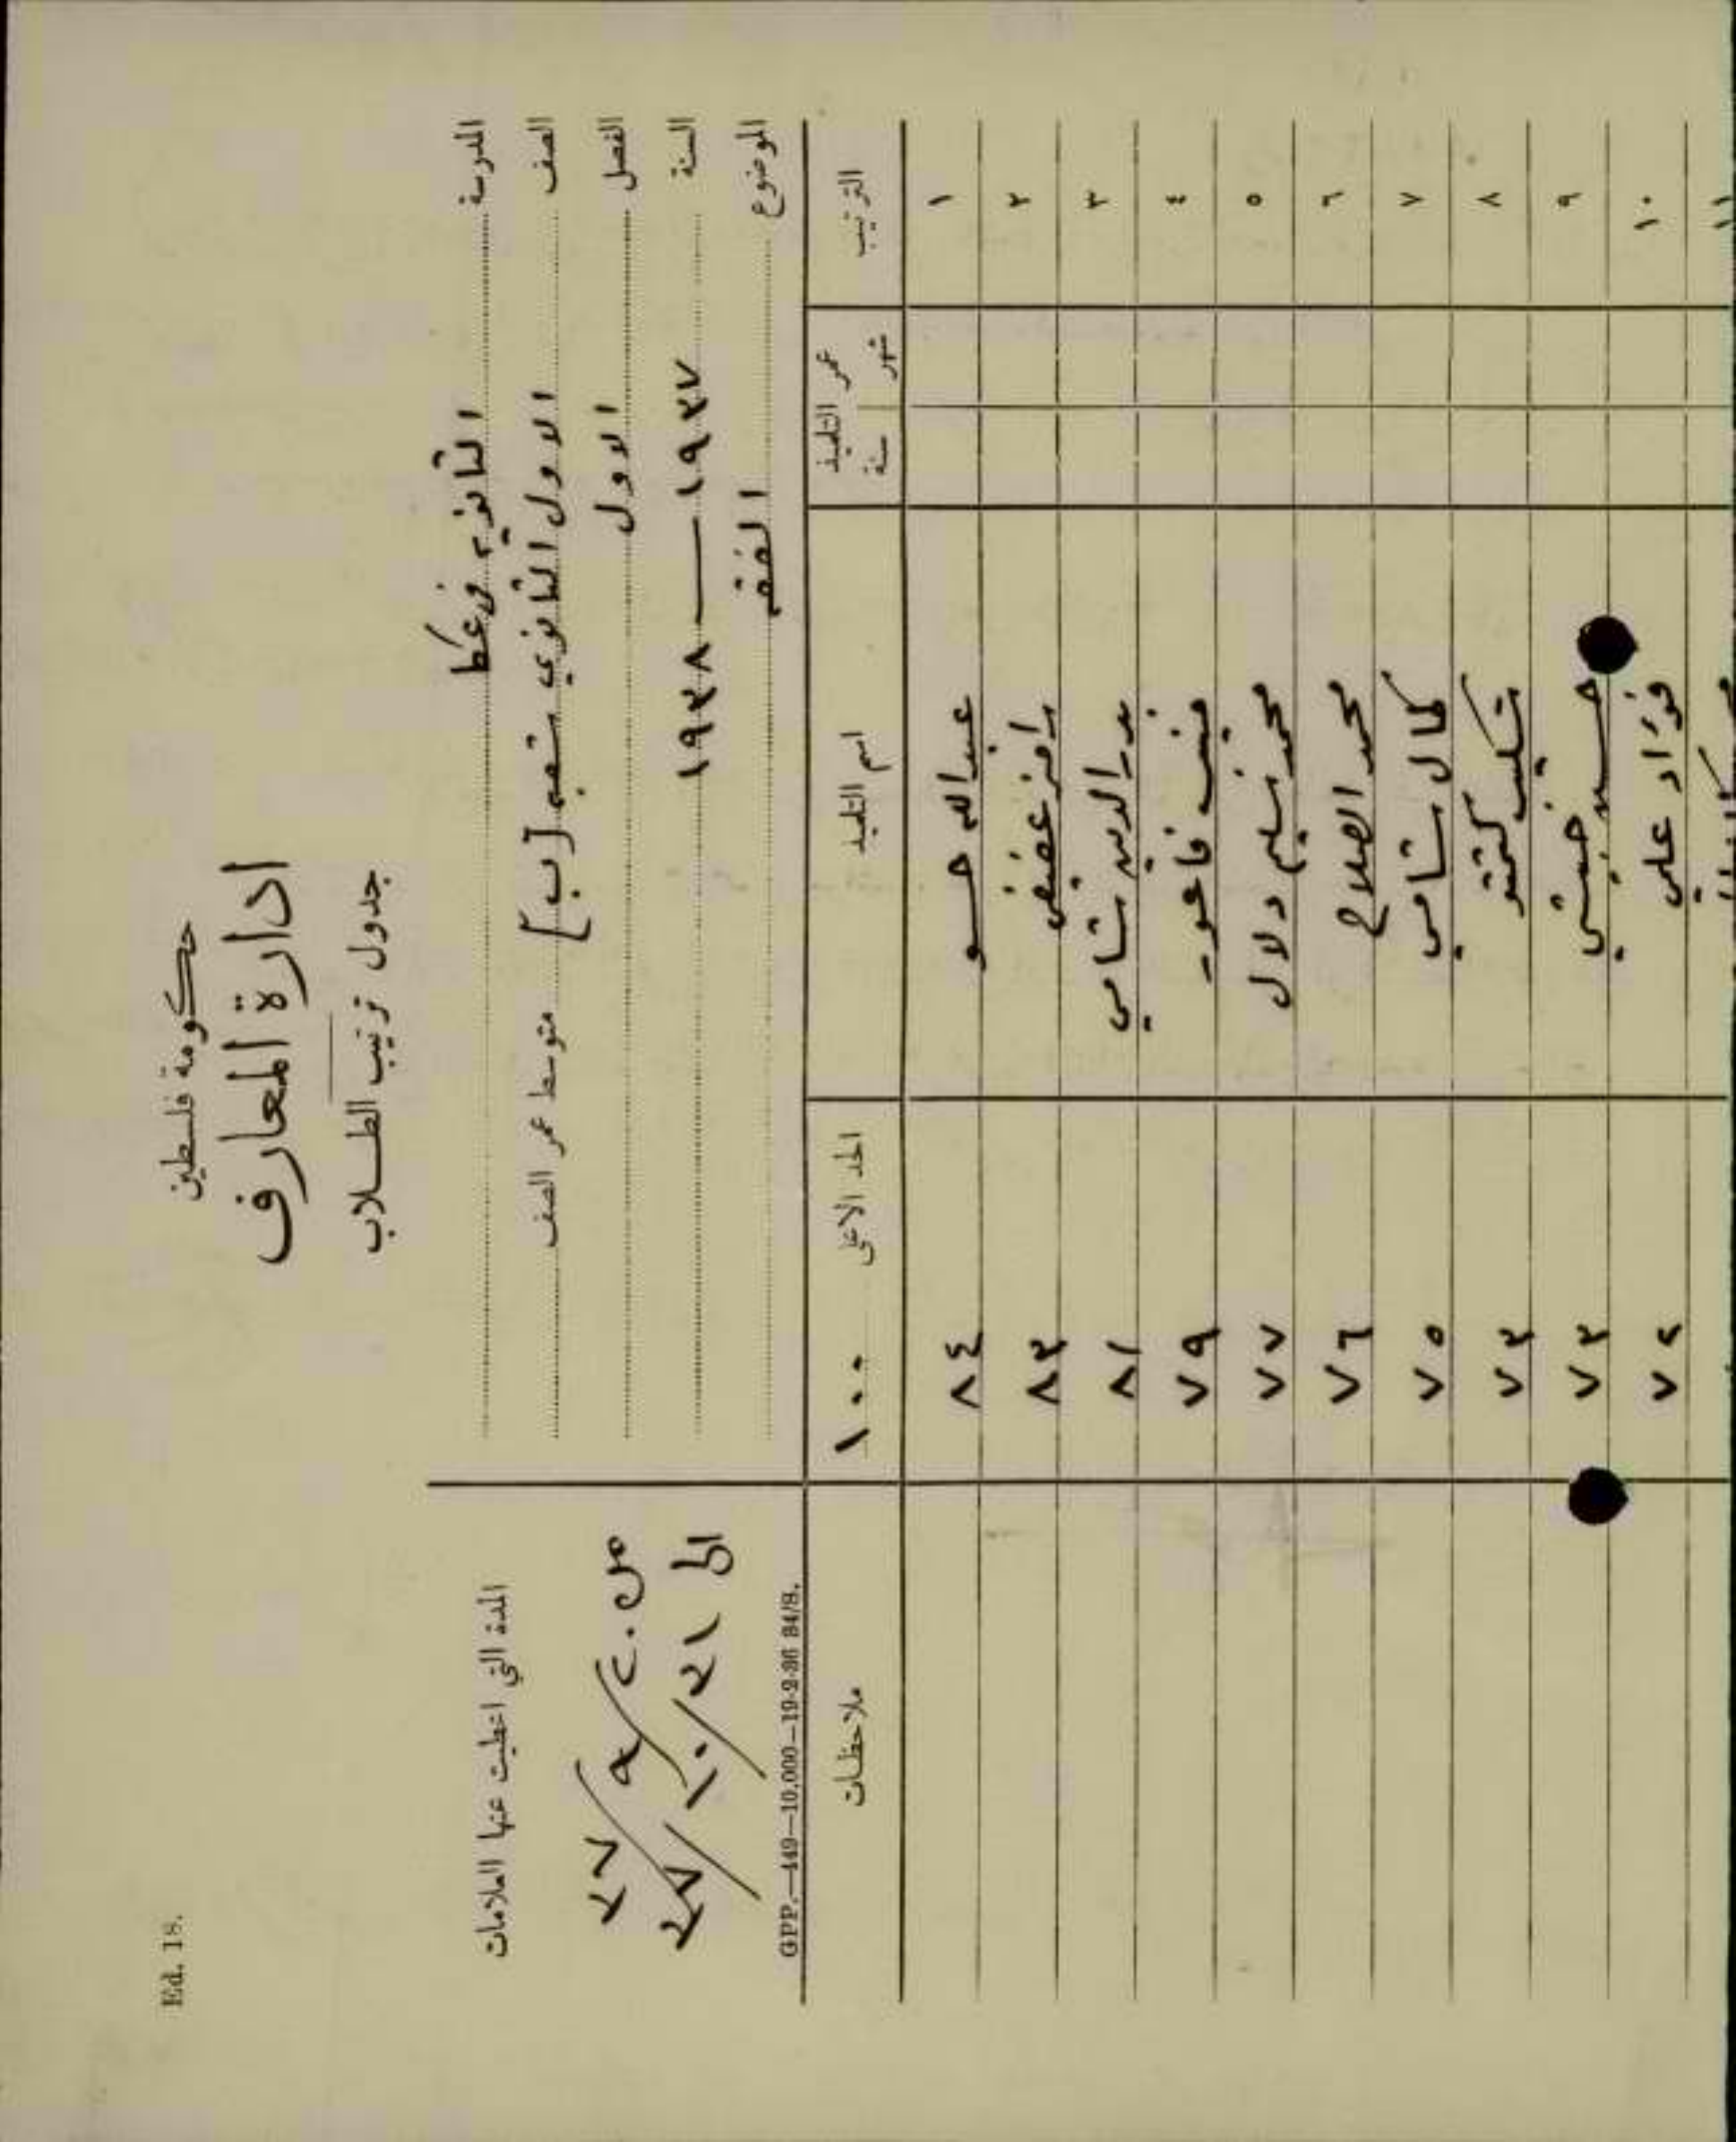 Ed. 18.
حكومة فلسطين
ادارة المعارف
جدول ترتيب الطلاب
المدرسة الثانوية في عكا
الصف الاول الثانوي شعبة [ب] متوسط عمر الصف
الفصل الاول
السنة ١٩٣٧ — ١٩٣٨
الموضوع الفقه
المدة التي اعطيت عنها العلامات
من ٢٠/٩/٣٧
الى ٣١/١٠/٣٧
GPP.—449—10,000—19-2-36 84/S.
الترتيب عمر التلميذ سنة شهر اسم التلميذ الحد الاعلى ١٠٠ ملاحظات
١ عبدالله حسو ٨٤
٢ رامز عفيفي ٨٣
٣ بدر الدين شامي ٨١
٤ منيب فاعور ٧٩
٥ محمد سليم دلال ٧٧
٦ محمد الصلاح ٧٦
٧ كمال شامي ٧٥
٨ شكيب ٧٣
٩ حسين ٧٣
١٠ فؤاد علي ٧٢
١١